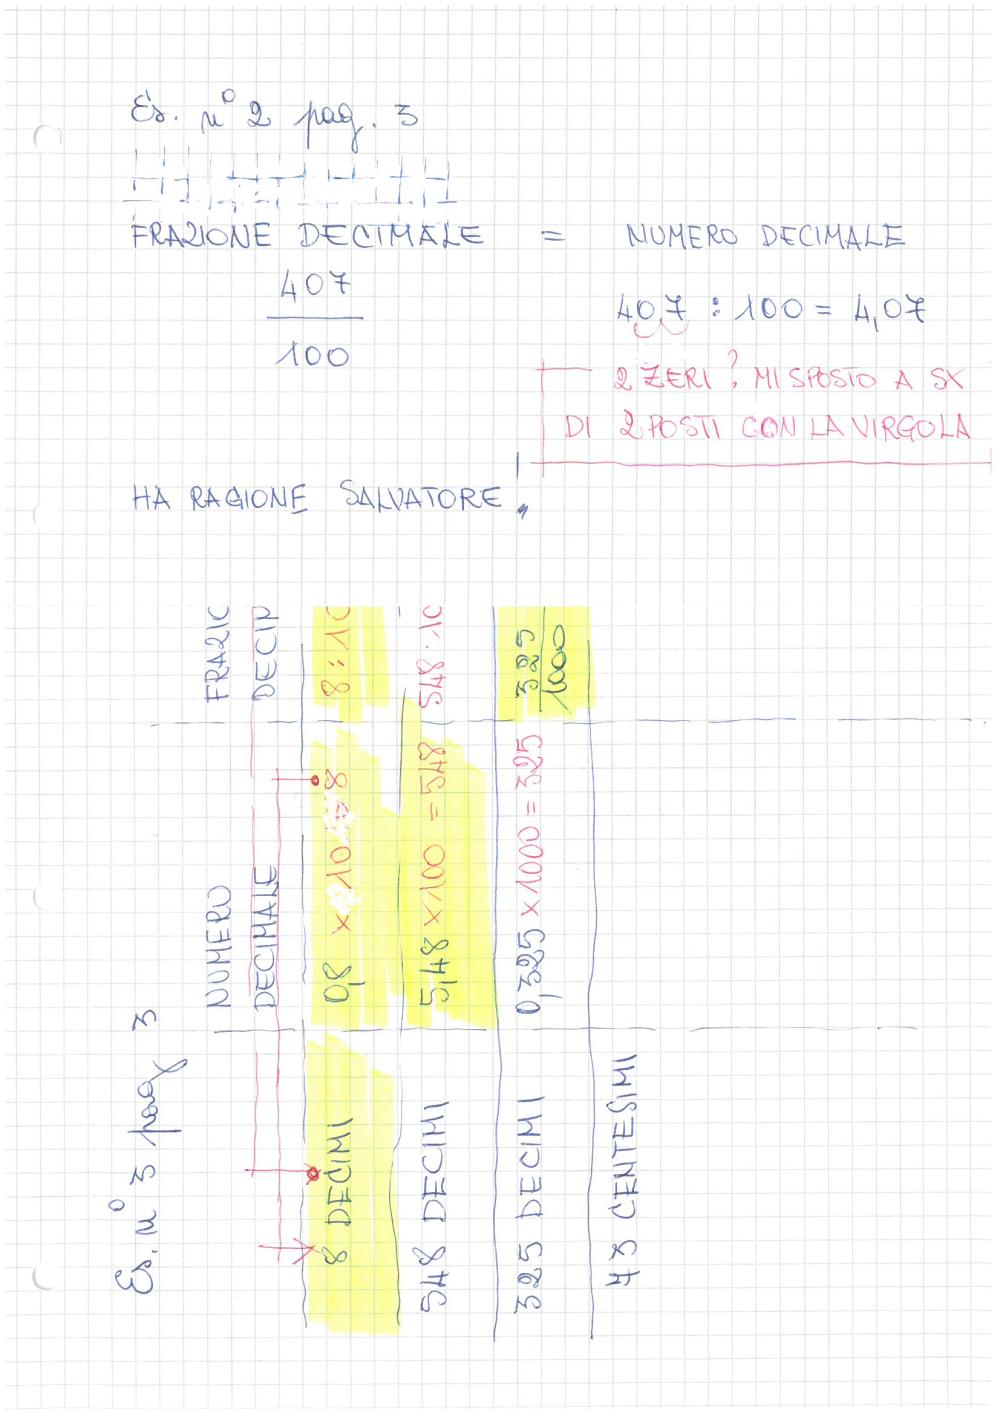 Es. n° 2 pag. 3
FRAZIONE DECIMALE = NUMERO DECIMALE
407
100
407 : 100 = 4,07
2 ZERI? MI SPOSTO A SX
DI 2 POSTI CON LA VIRGOLA
HA RAGIONE SALVATORE.
Es. n° 3 pag 3
NUMERO DECIMALE
FRAZIO
DECIM
8 DECIMI 0,8 x 10 = 8 8:10
548 DECIMI 5,48 x 100 = 548 548:10
325 DECIMI 0,325 x 1000 = 325 325
1000
43 CENTESIMI